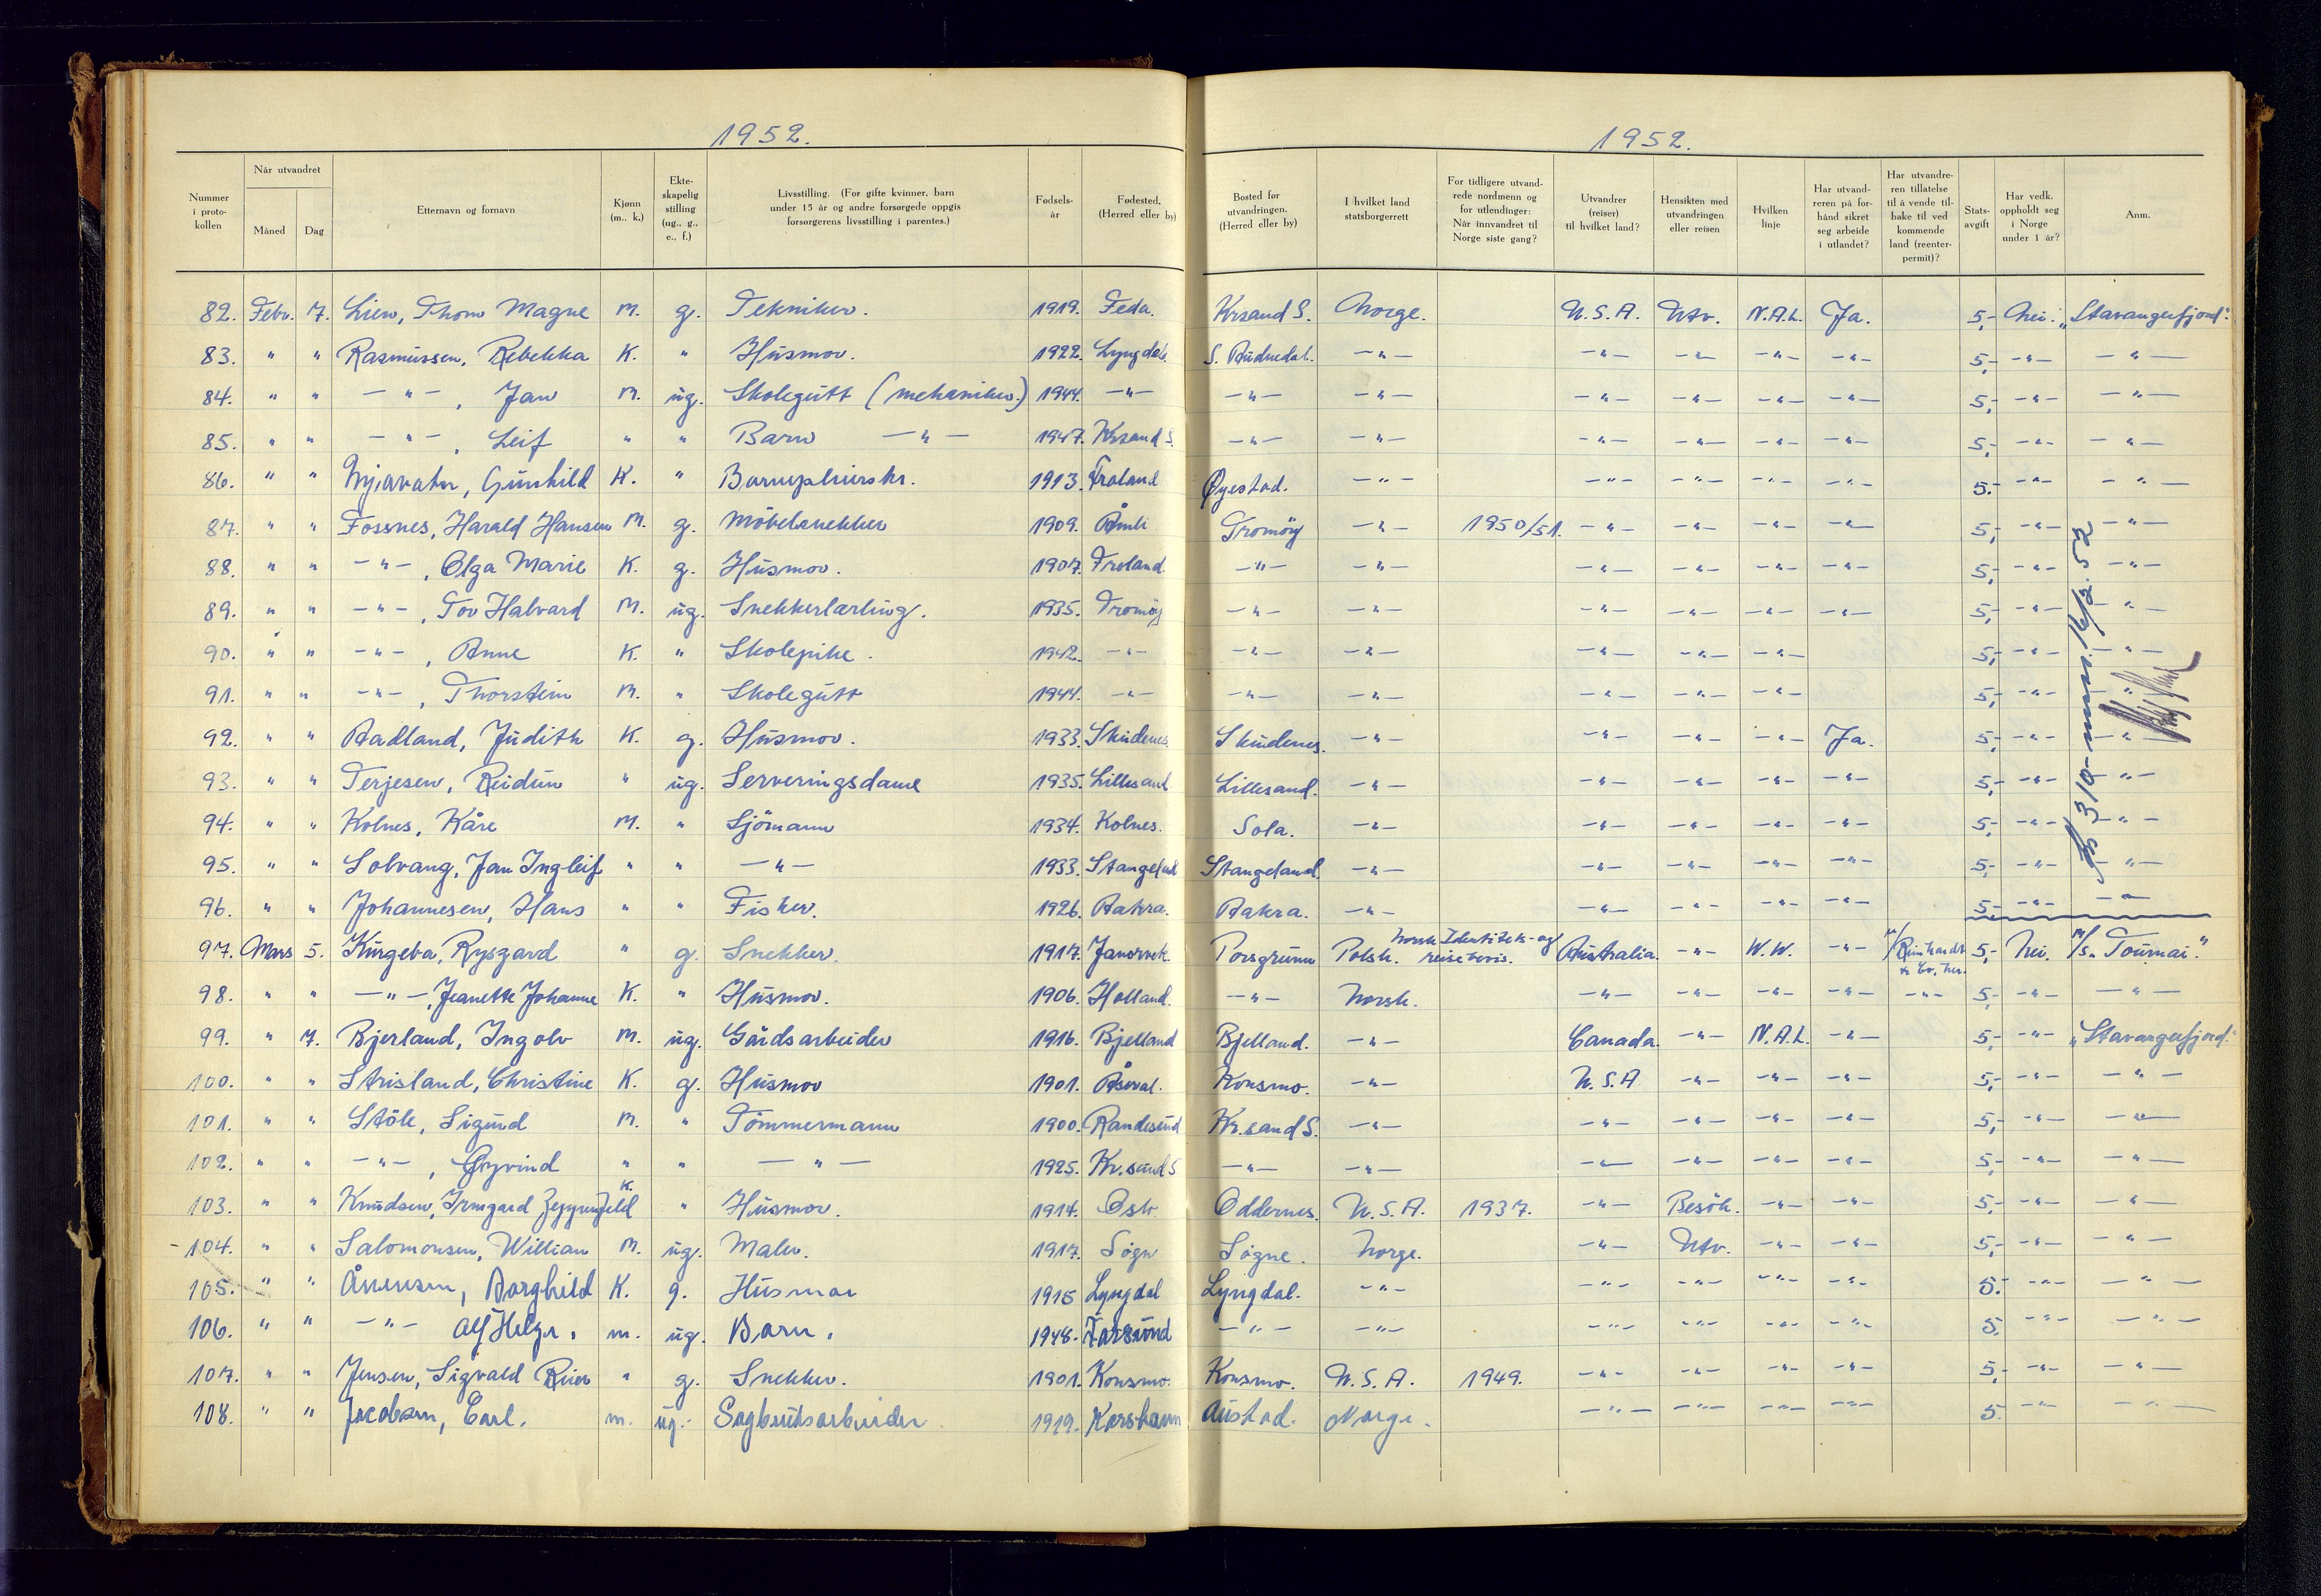 1952.
1952.
Nummer i protokollen | Når utvandret | Måned | Dag | Etternavn og fornavn | Kjønn (m.. k.) | Ekteskapelig stilling (ug.. g.. e.. f.) | Livsstilling. (For gifte kvinner, barn under 15 år og andre forsørgede oppgis forsørgerens livsstilling i parentes.) | Fødselsår | Fødested. (Herred eller by) | Bosted før utvandringen. (Herred eller by) | I hvilket land statsborgerrett | For tidligere utvandrede nordmenn og for utlendinger: Når innvandret til Norge siste gang? | Utvandrer (reiser) til hvilket land? | Hensikten med utvandringen eller reisen | Hvilken linje | Har utvandreren på forhånd sikret seg arbeide i utlandet? | Har utvandreren tillatelse til å vende tilbake til vedkommende land (reenterpermit)? | Statsavgift | Har vedk. oppholdt seg i Norge under 1 år? | Anm.
82. Febr. 7. Lien, Thom Magne M. g. Tekniker. 1919. Feda. Krsand S. Norge. U.S.A. Utv. N.A.L. Ja. 5,- Nei. „Stavangerfjord"
83. " " Rasmussen, Rebekka K. " Husmor. 1922. Lyngdal. S. Audnedal. -"- -"- -"- -"- -"- 5,- -"- -"-
84. " " -"-, Jan M. ug. Skolegutt (mekaniker.) 1944. -"- -"- -"- -"- -"- -"- -"- 5,- -"- -"-
85. " " -"-, Leif " " Barn -"- 1947. Krsand S. -"- -"- -"- -"- -"- -"- 5,- -"- -"-
86. " " Gunhild K. " 1913. Froland Øyestad. -"- -"- -"- -"- -"- 5.- -"- -"-
87. " " Fossnes, Harald Hansen M. g. Möbelsnekker 1909. Åmli Tromöy -"- 1950/51. -"- -"- -"- -"- 5,- -"- -"-
88. " " -"-, Olga Marie K. g. Husmor. 1907. Froland. -"- -"- -"- -"- -"- -"- 5,- -"- -"-
89. " " -"-, Tov Halvard M. ug. Snekkerlærling. 1935. Tromöy -"- -"- -"- -"- -"- -"- 5,- -"- -"-
90. " " -"-, Anne K. " Skolepike. 1942. -"- -"- -"- -"- -"- -"- 5,- -"- -"-
91. " " -"-, Thorstein M. " Skolegutt 1944. -"- -"- -"- -"- -"- -"- 5,- -"- -"-
92. " " Aadland, Judith K. g. Husmor. 1933. Skudenes. Skudenes. -"- -"- -"- -"- Ja. 5,- -"- -"-
93. " " Terjesen, Reidun " ug. Serveringsdame 1935. Lillesand Lillesand. -"- -"- -"- -"- -"- 5,- -"- -"-
94. " " Kolnes, Kåre M. " Sjömann 1934. Kolnes. Sola. -"- -"- -"- -"- -"- 5,- -"- -"-
95. " " Solvang, Jan Ingleif " " -"- 1933. Stangeland Stangeland. -"- -"- -"- -"- -"- 5,- -"- -"-
96. " " Johannesen, Hans " " Fisker. 1926. Aakra. Aakra. -"- -"- -"- -"- -"- 5,- -"- -"-
97. Mars 5. Kurgeba, Rysgard " g. Snekker. 1917. Porsgrunn Polsk. Norsk Identitets- og reisebevis. Australia. -"- W.W. -"- 5,- Nei. M/s „Tournai."
98. " " -"-, Jeanette Johanne K. " Husmor. 1906. Holland. -"- Norsk. -"- -"- -"- -"- -"- 5,- -"- -"-
99. " 7. Bjerland, Ingolv M. ug. Gårdsarbeider 1916. Bjelland Bjelland. -"- Canada. -"- N.A.L. -"- 5,- -"- „Stavangerfjord."
100. " " Strisland, Christine K. g. Husmor 1901. Åseral. Konsmo. -"- U.S.A -"- -"- -"- 5,- -"- -"-
101. " " Støle, Sigurd M. " Tömmermann 1900. Randesund Kr.sand S. -"- -"- -"- -"- -"- 5,- -"- -"-
102. " " -"-, Øyvind " " -"- 1925. Kr.sund S -"- -"- -"- -"- -"- -"- 5,- -"- -"-
103. " " Knudsen, Irmgard Zeppenfeld K. " Husmor. 1914. Oslo. Oddernes. U.S.A. 1937. -"- Besök. -"- -"- 5,- -"- -"-
104. " " Salomonsen, William M. ug. Maler. 1917. Søgne Søgne. Norge. -"- Utv. -"- -"- 5,- -"- -"-
105. " " Borghild K. g. Husmor 1915 Lyngdal Lyngdal. -"- -"- -"- -"- -"- 5.- -"- -"-
106. " " -"- Alf Helge. m. ug. Barn. 1948. Farsund -"- -"- -"- -"- -"- -"- 5. -"- -"-
107. " " Jensen, Sigvald Reier " g. Snekker. 1901. Konsmo. Konsmo. U.S.A. 1949. -"- -"- -"- -"- 5,- -"- -"-
108. " " Jacobsen, Carl. m. ug. Sagbruksarbeider. 1919. Korshavn Austad. Norge. -"- -"- -"- -"- 5. -"- -"-